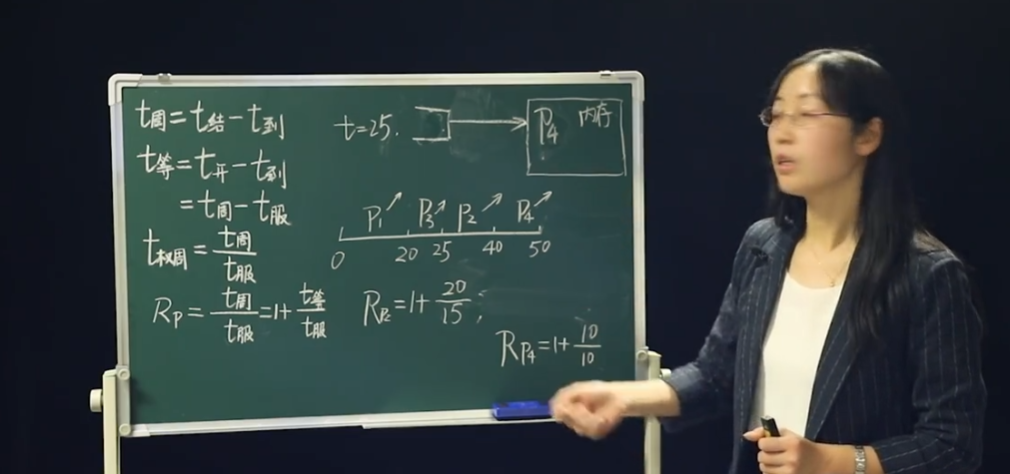 t周=t结-t到
t等=t开-t到
=t周-t服
t权周=t周/t服
Rp=t周/t服=1+t等/t服
t=25.
P4 内存
P1 P3 P2 P4
0 20 25 40 50
RP2=1+20/15;
RP4=1+10/10